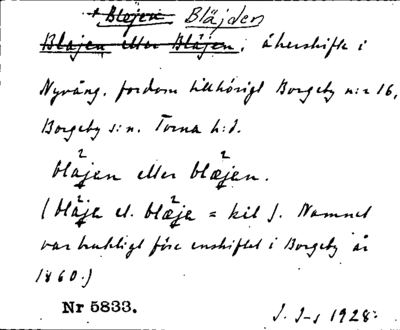 Blöjen Bläjden
Blajen eller Bläjen; åkerskifte i
Nyvång, fordom tillhörigt Borgeby n:r 16,
Borgeby s:n. Torna h:d.
blajen eller blæjen.
(blaja el. blæja = kil). Namnet
var brukligt före enskiftet i Borgeby år
1860.)
Nr 5833.
J. I-s 1928.